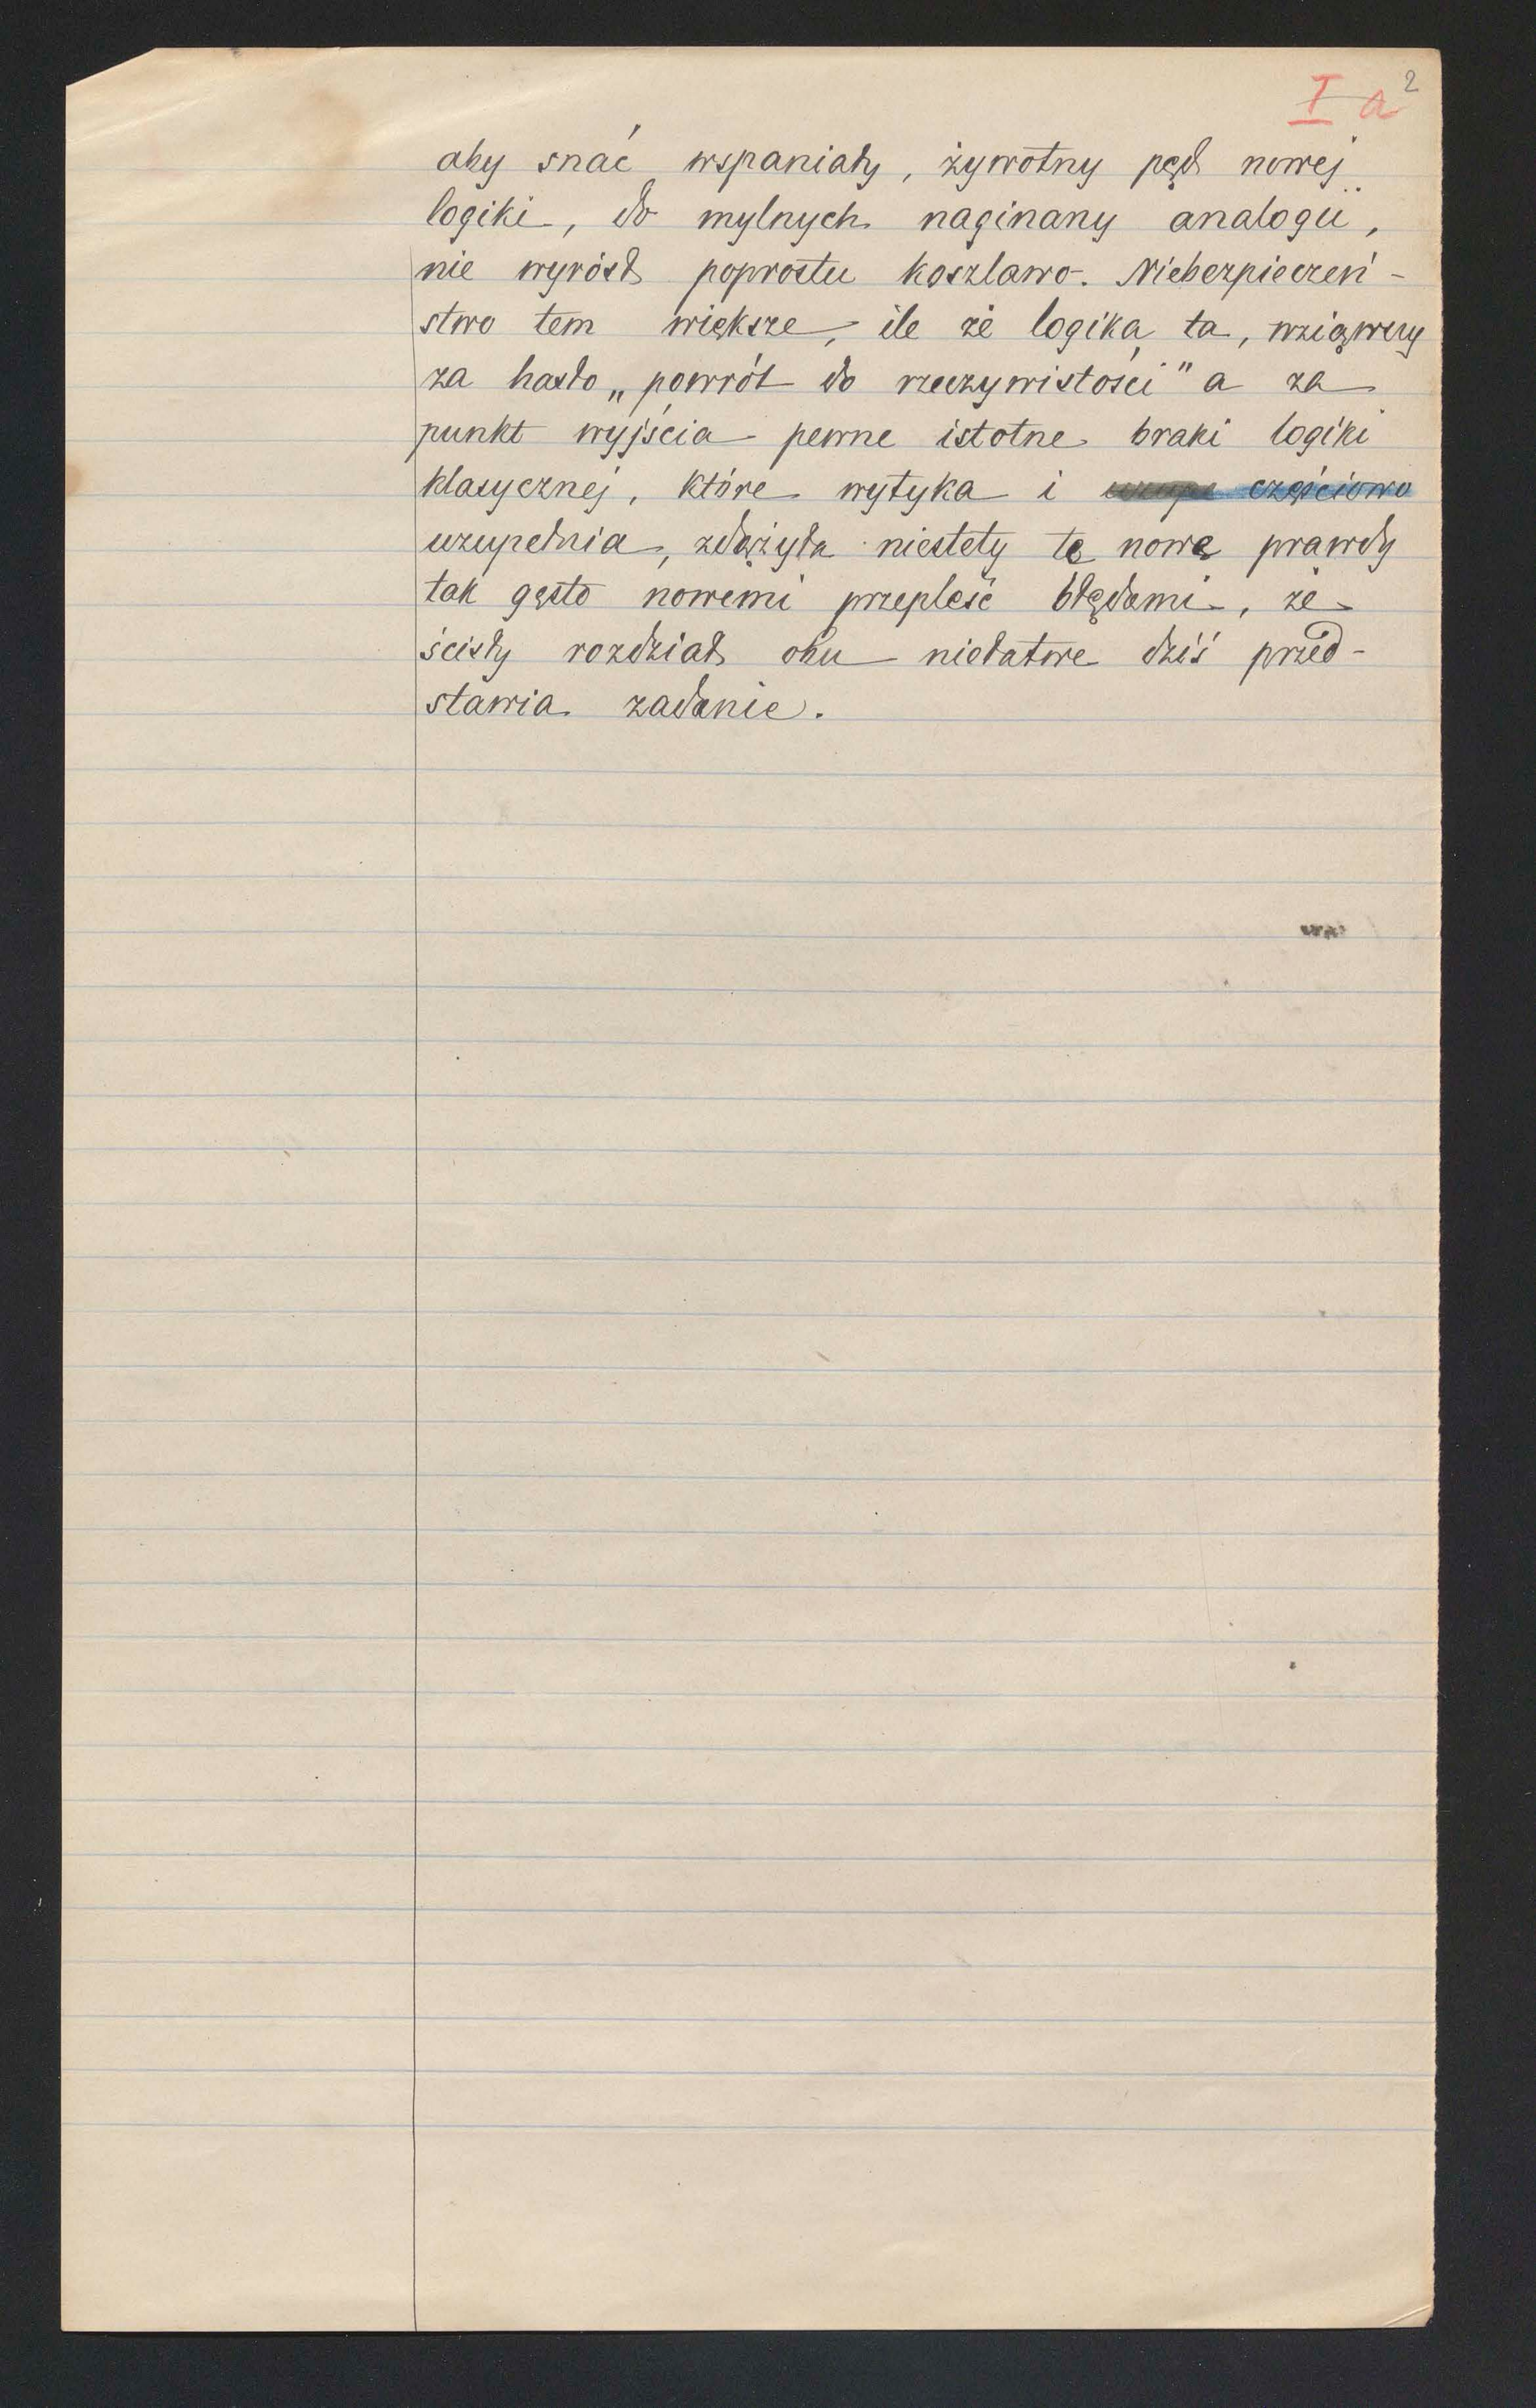 I a 2
aby snać wspaniały, żywotny pęd nowej
logiki, do mylnych naginany analogii,
nie wyrósł poprostu koszlawo. Niebezpieczeń-
stwo tem większe, ile że logika ta, wziąwszy
za hasło „powrót do rzeczywistości" a za
punkt wyjścia pewne istotne braki logiki
klasycznej, które wytyka i częściowo
uzupełnia, zdążyła niestety tę nową prawdy
tak gęsto nowemi przepleść błędami, że
ścisły rozdział obu niełatwe dziś przed-
stawia zadanie.